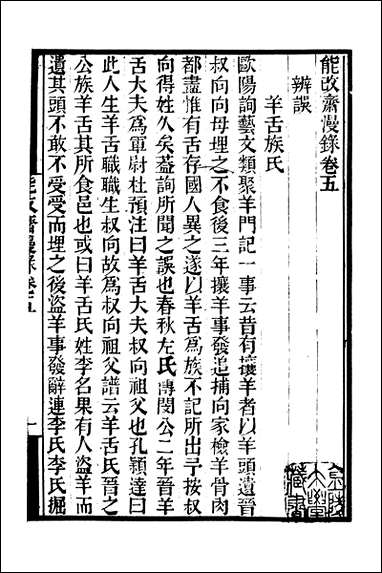 能改齋漫錄卷五
辨誤
羊舌族氏
歐陽詢藝文類聚羊門記一事云昔有攘羊者以羊頭遺晉
叔向向母埋之不食後三年攘羊事發追捕向家檢羊骨肉
都盡惟有舌存國人異之遂以羊舌爲族不記所出予按叔
向得姓久矣蓋詢所聞之誤也春秋左氏傳閔公二年晉羊
舌大夫爲軍尉杜預注曰羊舌大夫叔向祖父也孔穎達曰
此人生羊舌職職生叔向故爲叔向祖父譜云羊舌氏晉之
公族羊舌其所食邑也或曰羊舌氏姓李名果有人盜羊而
遺其頭不敢不受受而埋之後盜羊事發辭連李氏李氏掘
能改齋漫錄卷五
一